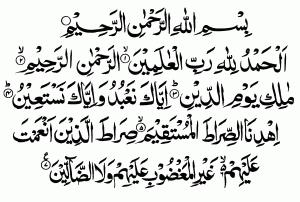 بِسْمِ اللهِ الرَّحْمٰنِ الرَّحِيْمِ
اَلْحَمْدُ لِلّٰهِ رَبِّ الْعٰلَمِيْنَ ۙ﴿۱﴾ الرَّحْمٰنِ الرَّحِيْمِ ۙ﴿۲﴾
مٰلِكِ يَوْمِ الدِّيْنِ ؕ﴿۳﴾ اِيَّاكَ نَعْبُدُ وَاِيَّاكَ نَسْتَعِيْنُ ؕ﴿۴﴾
اِهْدِنَا الصِّرَاطَ الْمُسْتَقِيْمَ ۙ﴿۵﴾ صِرَاطَ الَّذِيْنَ اَنْعَمْتَ
عَلَيْهِمْ ۙ﴿۶﴾ غَيْرِ الْمَغْضُوْبِ عَلَيْهِمْ وَلَا الضَّآلِّيْنَ